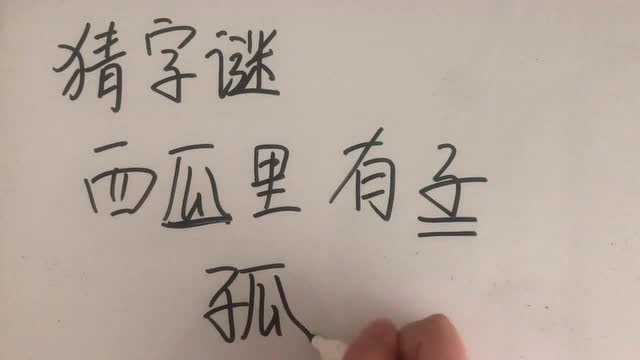 猜字谜
西瓜里有子
孤